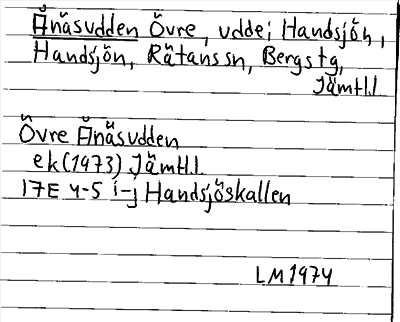 Ånäsudden Övre, udde i Handsjön,
Handsjön, Rätans sn, Bergs tg,
Jämtl.l
Övre Ånäsudden
ek (1973) Jämtl.l.
17E 4-5 i-j Handsjöskallen
LM 1974